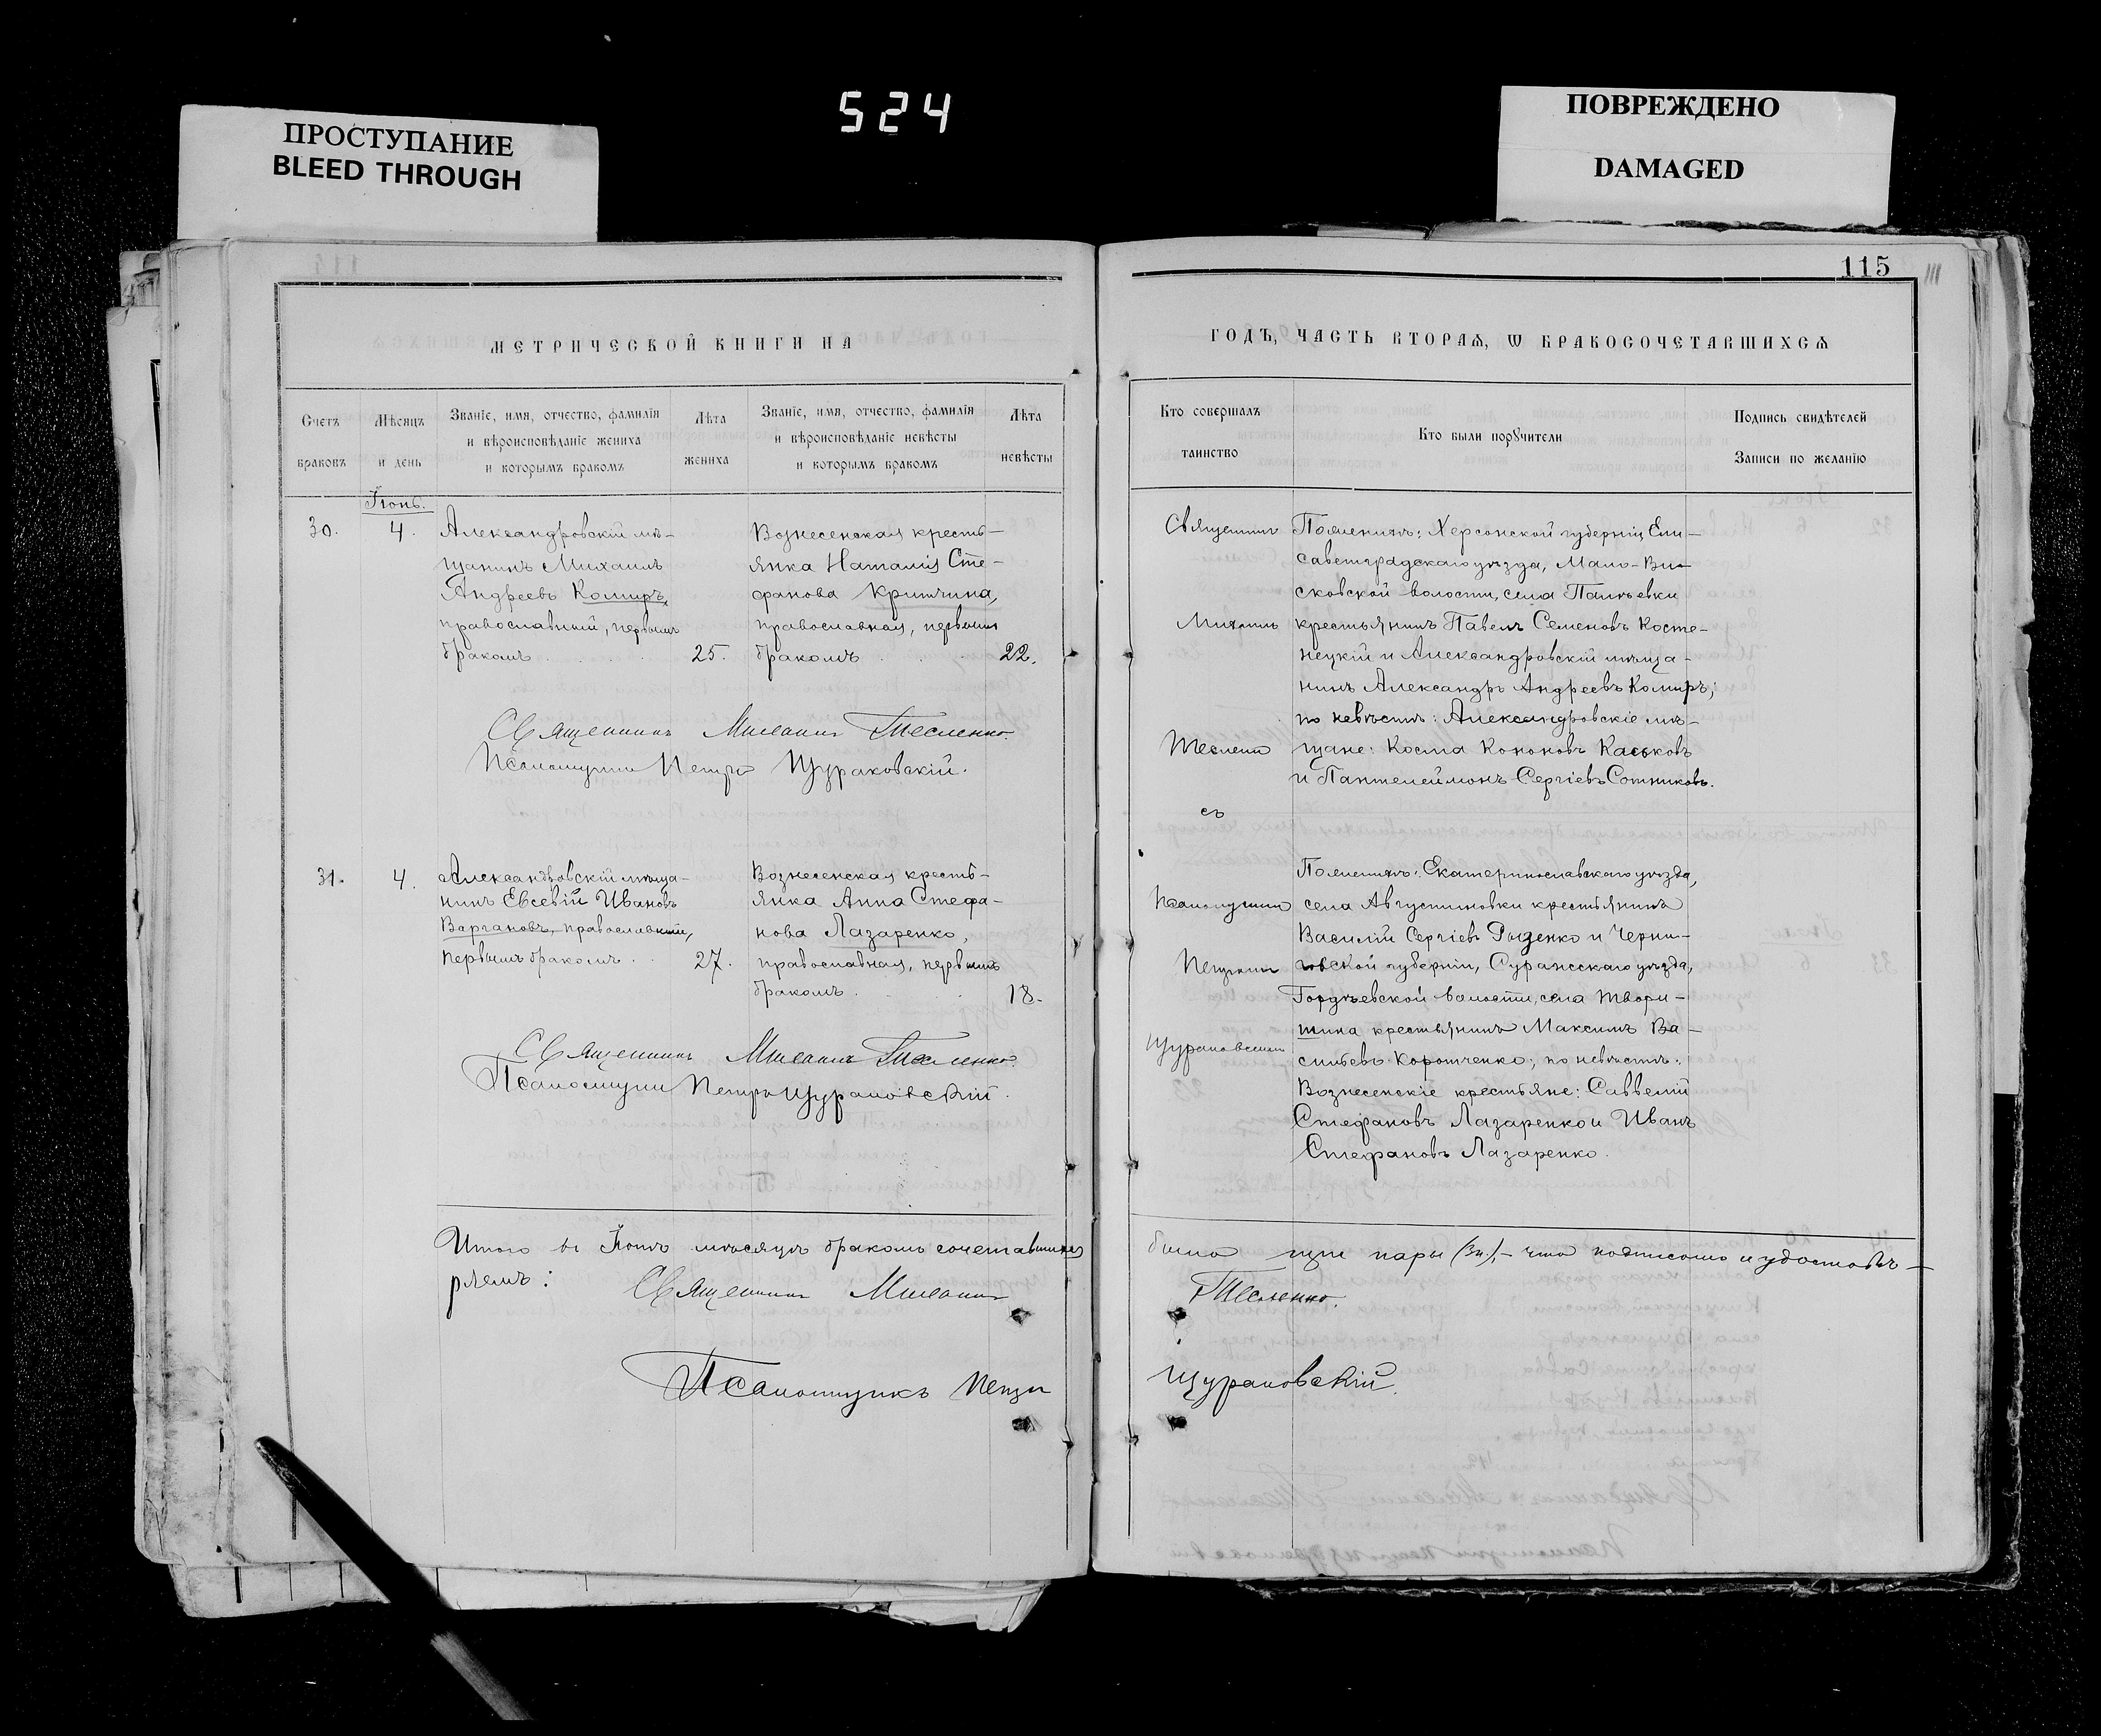 524
ПРОСТУПАНИЕ
BLEED THROUGH
ПОВРЕЖДЕНО
DAMAGED
115
111
МЕТРИЧЕСКОЙ КНИГИ НА
ГОДЪ, ЧАСТЬ ВТОРАЯ, Ѡ БРАКОСОЧЕТАВШИХСЯ
Счетъ браковъ
Мѣсяцъ и день
Званіе, имя, отчество, фамилія и вѣроисповѣданіе жениха и которымъ бракомъ
Лѣта жениха
Званіе, имя, отчество, фамилія и вѣроисповѣданіе невѣсты и которымъ бракомъ
Лѣта невѣсты
Кто совершалъ таинство
Кто были порꙋчители
Подпись свидѣтелей Записи по желанію
Іюнь.
30.
4.
Александровскій мѣ-
щанинъ Михаилъ
Андреевъ Комиръ,
православный, первымъ
бракомъ
25.
Вознесенская кресть-
янка Наталія Сте-
фанова Критчина,
православная, первымъ
бракомъ
22.
Священникъ Михаилъ Тесленко.
Псаломщикъ Петръ Щураковскій.
Священникъ
Михаилъ
Теслен
съ
Псаломщикомъ
Петромъ
Щураковскимъ
По женихѣ: Херсонской губерніи, Ели-
саветградскаго уѣзда, Мало-Ви-
сковской волости, села Паліевки
крестьянинъ Павелъ Семеновъ Косте-
нецкій и Александровскій мѣща-
нинъ Александръ Андреевъ Комиръ;
по невѣстѣ: Александровскіе мѣ-
щане: Косма Кононовъ Каськовъ
и Пантелеймонъ Сергіевъ Сотниковъ.
31.
4.
Александровскій мѣща-
нинъ Евсевій Ивановъ
Вагановъ, православный,
первымъ бракомъ
27.
Вознесенская кресть-
янка Анна Стефа-
нова Лазаренко,
православная, первымъ
бракомъ.
18.
Священникъ Михаилъ Тесленко.
Псаломщикъ Петръ Щураковскій.
По женихѣ: Екатеринославскаго уѣзда,
села Августиновки крестьянинъ
Василій Сергіевъ Рыценко и Черни-
говской губерніи, Суражскаго уѣзда,
Гордѣевской волости, села Твори-
шина крестьянинъ Максимъ Ва-
сильевъ Коротченко; по невѣстѣ:
Вознесенскіе крестьяне: Саввелій
Стефановъ Лазаренко и Иванъ
Стефановъ Лазаренко.
Итого въ Іюнѣ мѣсяцѣ бракомъ сочетавшихся было три пары (3п.),- что подписомъ и удостовѣ-
ряемъ: Священникъ Михаилъ Тесленко.
Псаломщикъ Петръ Щураковскій.